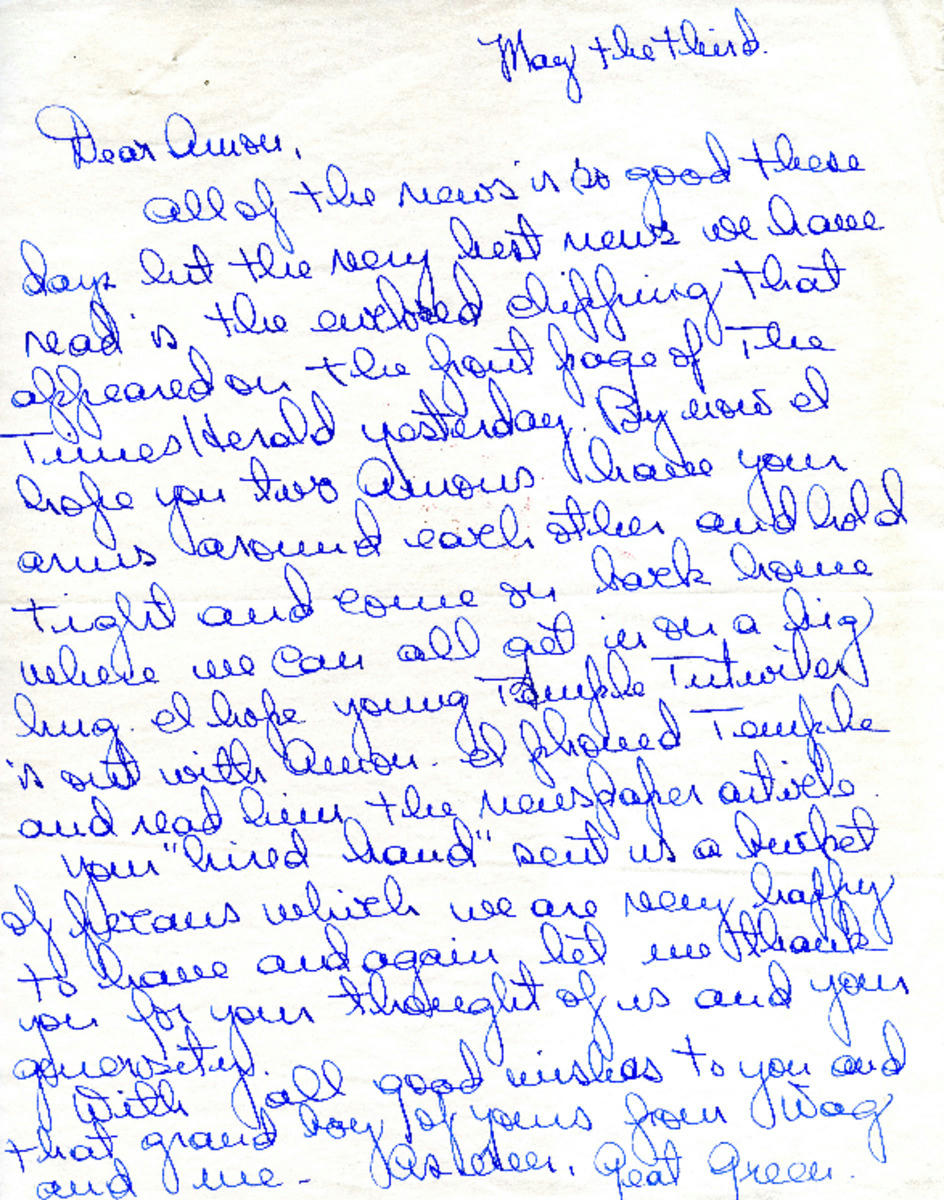 May the third.
Dear Amon,
All of the news is so good these
days but the very best news we have
read is the enclosed clipping that
appeared on the front page of The
Times Herald yesterday. By now I
hope you two Amons have your
arms around each other and hold
tight and come on back home
where we can all get in on a big
hug. I hope young Temple Tutwiler
is out with Amon. I phoned Temple
and read him the newspaper article.
Your "hired hand" sent us a bucket
of pecans which we are very happy
to have and again let me thank
you for your thought of us and your
generosity.
With all good wishes to you and
that grand boy of yours from Wag
and me - As ever, Green.